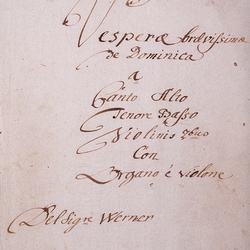 Vesperæ brevissimæ
de Dominica
a
Canto Alto
Tenore Basso
Violinis 2bus
Con
Organo è Violone
Del Sigre Werner